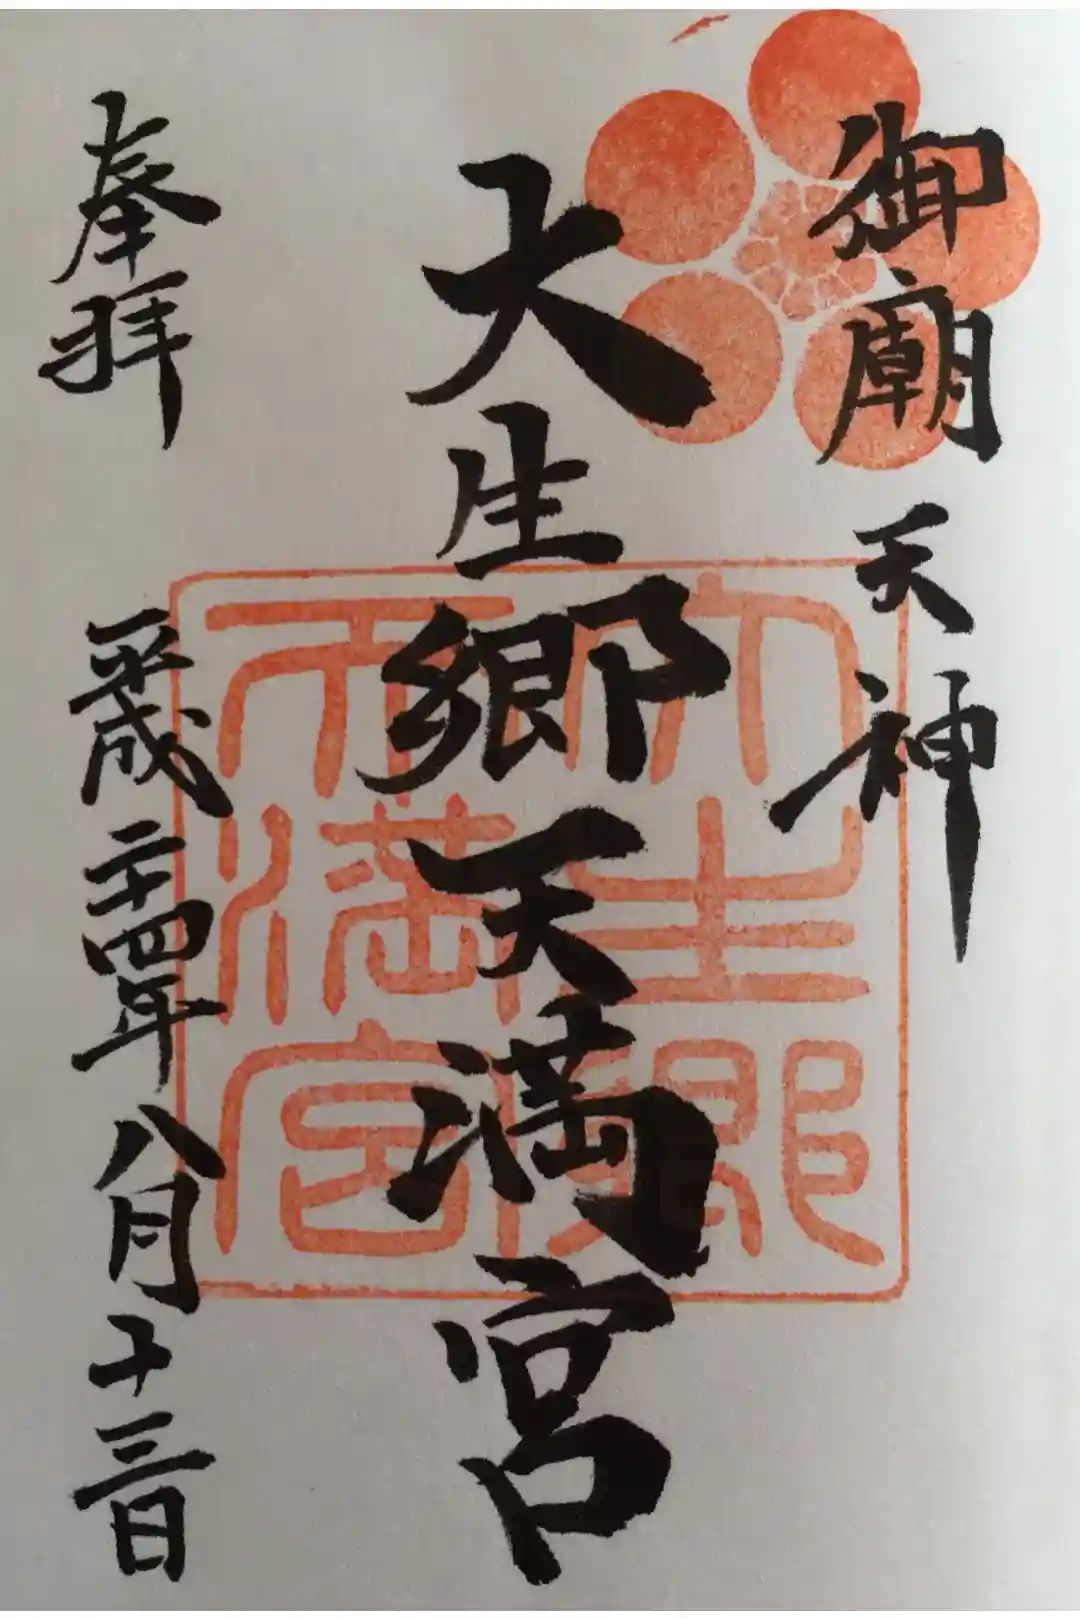 御廟天神
大生郷天満宮
奉拝
平成二十四年八月十三日
大生郷
天満宮